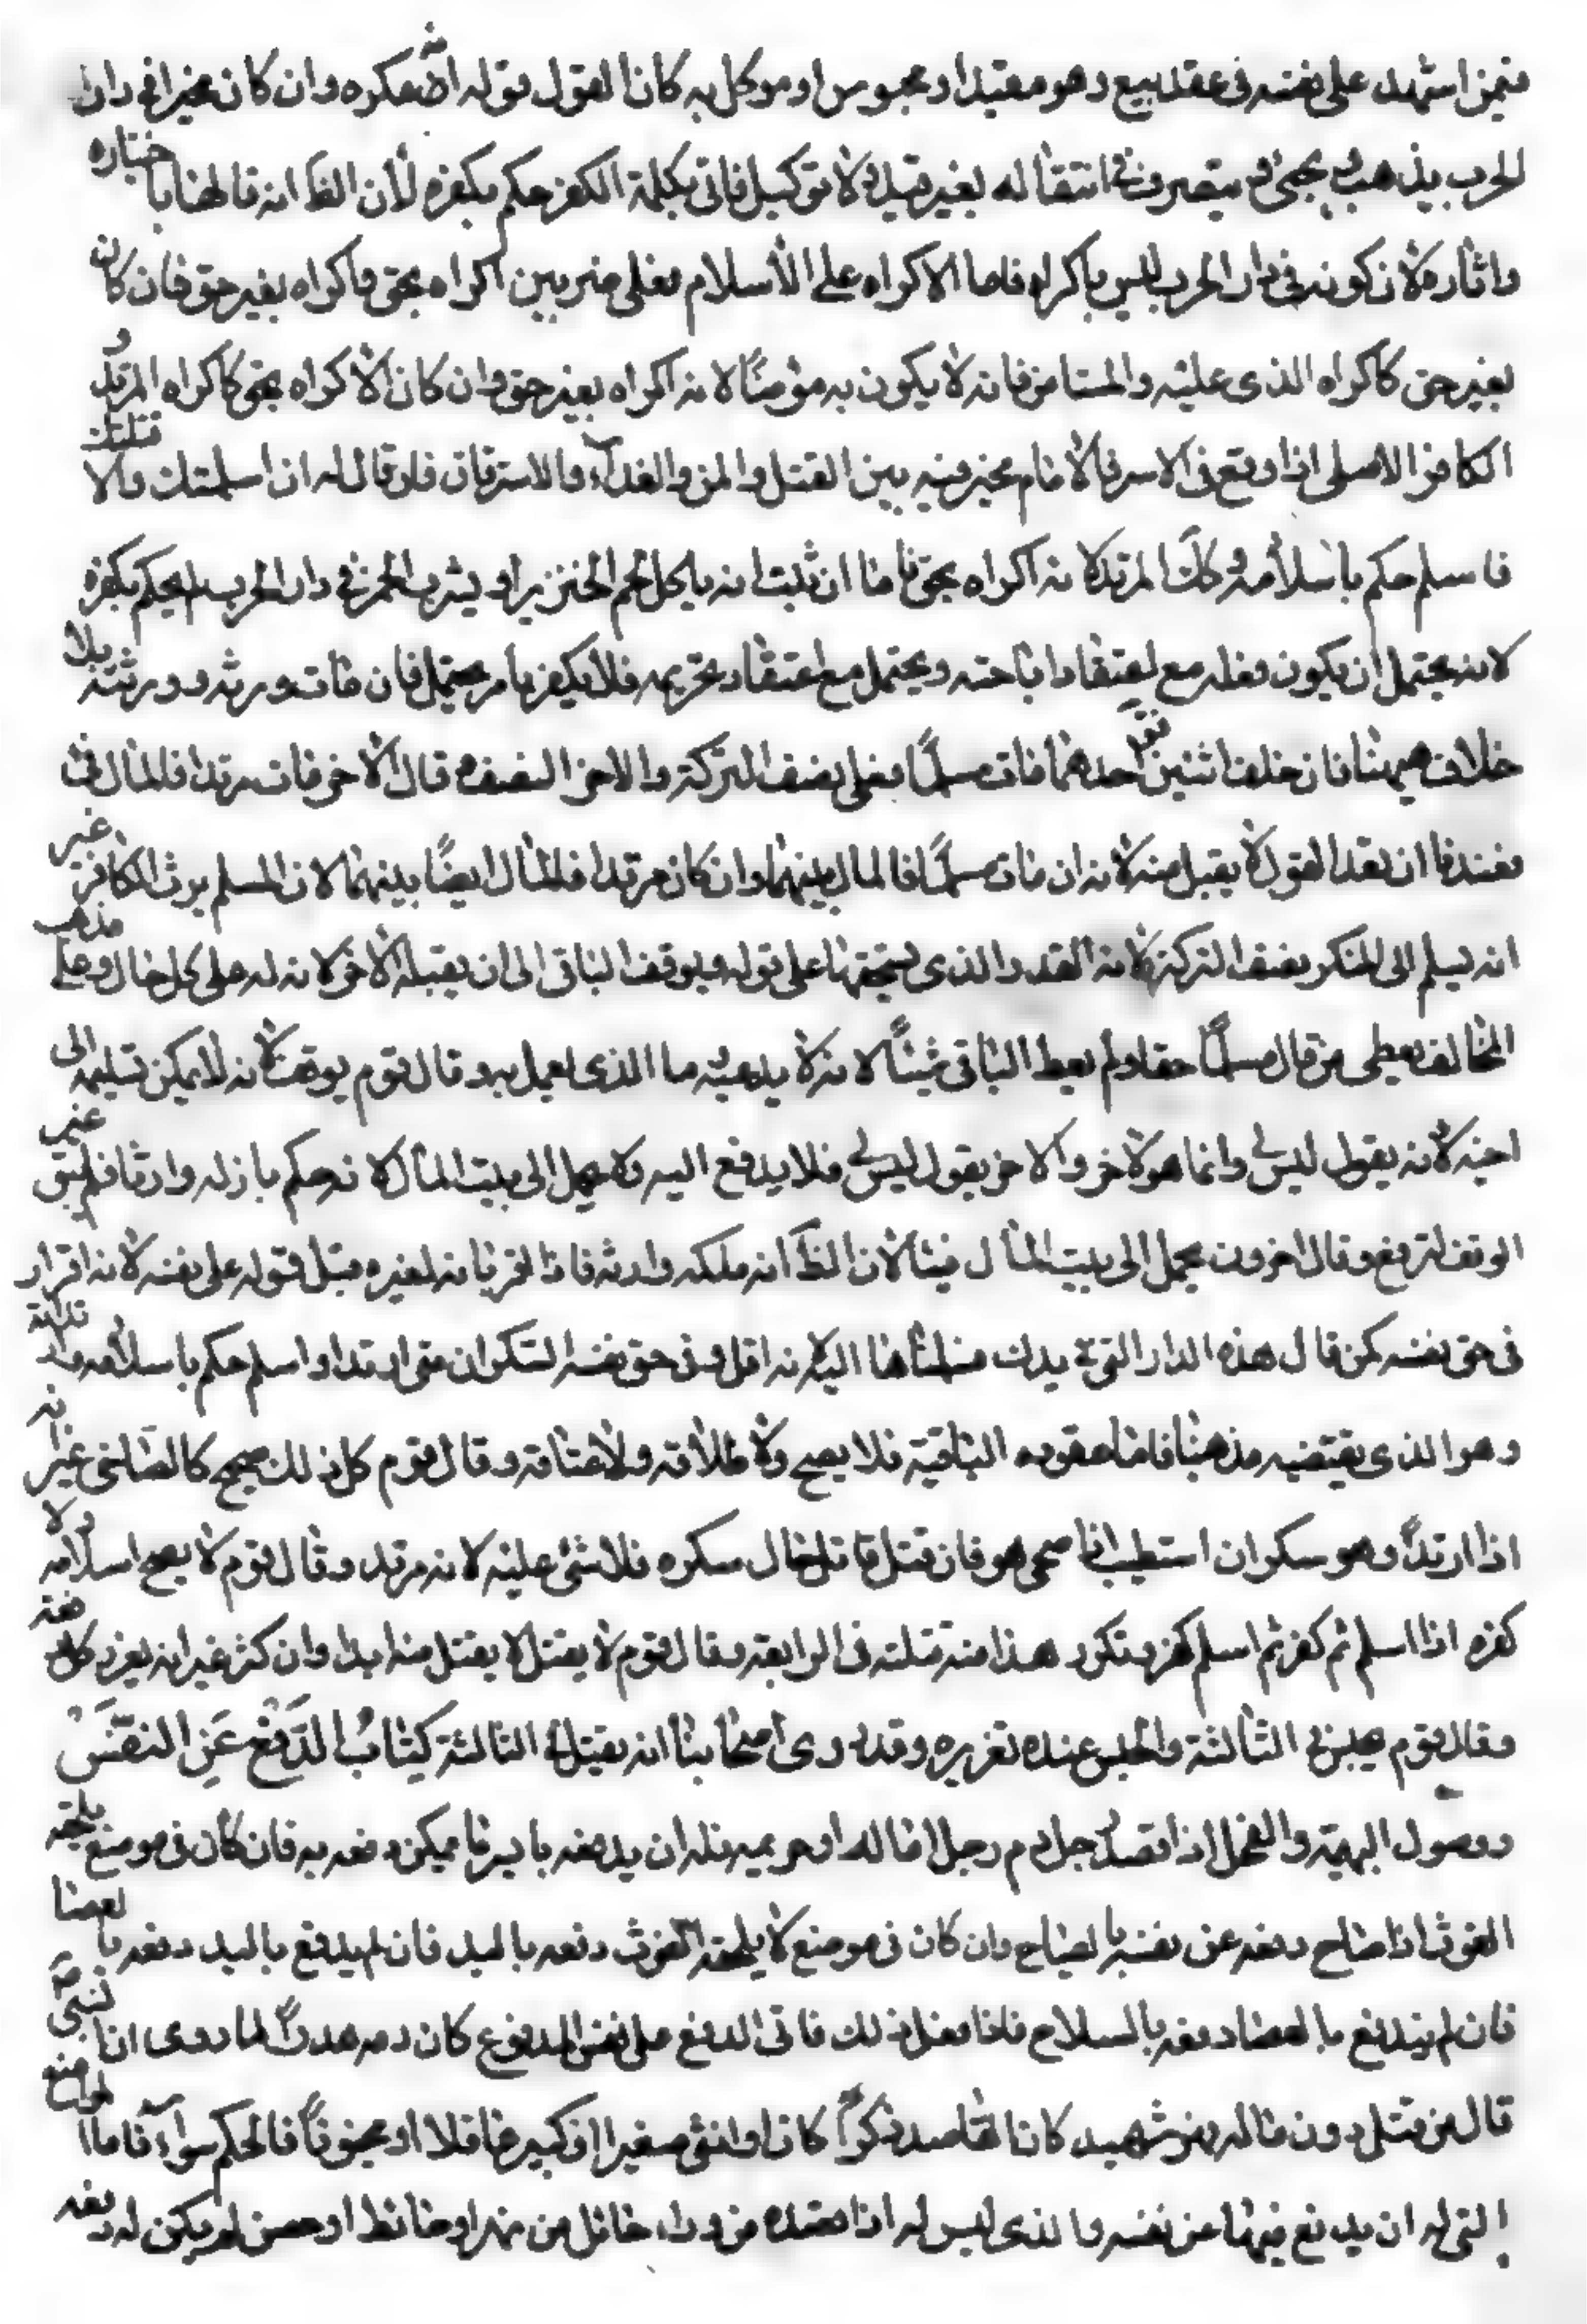 فيمن اشهد على نفسه في عقد بيع وهو مقيد او محبوس او موكل به كان القول قوله انه مكره وان كان مخيرا في دار
الحرب يذهب ويجئ ويتصرف في انتقاله بغير قيد ولا توكيل فاتى بكلمة الكفر حكم بكفره لأن الظ انه قالها باختياره
وايثاره لان كونه في دار الحرب ليس باكراه فاما الاكراه على الأسلام فعلى ضربين اكراه بحق واكراه بغير حق فان كان
بغير حق كاكراه الذمي عليه والمستامن فانه لا يكون به مؤمنًا لانه اكراه بغير حق وان كان الأكراه بحق كاكراه المرتد و
الكافر الاصلي اذا وقع في الاسر فالأمام مخير فيه بين القتل والمن والفدآء والاسترقاق فان قال له ان اسلمت والا قتلتك
فاسلم حكم باسلامه وكك المرتد لانه اكراه بحق فاما ان ثبت انه ياكل لحم الخنزير او يشرب الخمر في دار الحرب لم يحكم بكفره
لانه يحتمل ان يكون فعله مع اعتقاد اباحته ويحتمل مع اعتقاد تحريمه فلا يكفر بامر محتمل فان مات ورثه وورثته بلا
خلاف هيهنا فان خلف اثنين فقال احدهما مات مسلمًا فعلي نصف التركة والاخر النصف وقال الأخر مات مرتدا فالمال في
فعندنا ان بعد القول لا يقبل منه لانه ان مات مسلمًا فالمال بينهما وان كان مرتدا فالمال ايضًا بينهما لان المسلم يرث الكافر غير
انه يسلم الى المنكر نصف التركة لانه القدر الذي يستحقها على قوله ويوقف الباقي الى ان يقبله الأخر لانه له على كل حال وعلى مذهب
المخالف يعطى من قال مسلمًا حقه ولم يعط الباقي شيئًا لانه لا يدعيه ما الذي يعمل به وقال قوم يوقف لانه لا يمكن تسليمه الى
اخيه لانه يقول ليس لي وانما هو لاخر والاخر يقول ليس لي فلا يدفع اليه ولا يحمل الى بيت المال لانه حكم بان له وارثا فلم يبق غير
الوقف وقال اخرون يحمل الى بيت المال فيئا لان الظ انه ملكه وارثه فاذا اقر بانه لغيره قبل قوله على نفسه لانه اقرار
في حق نفسه كمن قال هذه الدار التي في يدك سلمتها اليك لانه اقل وفي حق نفسه السكران متى ارتد او اسلم حكم باسلامه وارتداده
وهو الذي يقتضيه مذهبنا فاما عقوده الباقية فلا يصح ولا طلاقه ولا عتاقه وقال قوم كل ذلك صحيح كالصاحي غير انه
اذا ارتد وهو سكران استطيب اذا صحى هو فان قتل قاتل حال سكره فلا شئ عليه لانه مرتد وقال قوم لا يصح اسلامه ولا
كفره اذا اسلم ثم كفر ثم اسلم ثم كفر وتكرر هذا منه قتلته في الرابعة وقال قوم لا يقتل لا يقتل منه ابدا وان كثر غير انه يعزر كل دفعة
وقال قوم يحبس في الثالثة والحبس عنده تعزيره وقد روى اصحابنا انه يقتل في الثالثة كِتَابُ الدَّفْعِ عَنِ النَّفْسِ
وصول البهيمة والفحل اذا قصد رجل دم رجل او ماله او حريمه فله ان يدفعه بايسر ما يمكن دفعه به فان كان في موضع يلحقه
الغوث اذا صاح دفعه عن نفسه بالصياح وان كان في موضع لا يلحقه الغوث دفعه باليد فان لم يندفع باليد دفعه بالعصا
فان لم يندفع بالعصا دفعه بالسلاح فاذا فعل ذلك فاتى الدفع على نفس المدفوع كان دمه هدرًا لما روى ان النبي ص
قال من قتل دون ماله فهو شهيد كان القاصد ذكرًا كان او انثى صغيرا او كبير عاقلا او مجنونًا فالحكم سوآء فاما المواضع
التي له ان يدفع فيها عن نفسه والذي ليس له اذا قصده من وراء حائل من نهر او حائط او حصن لم يكن له دفعه